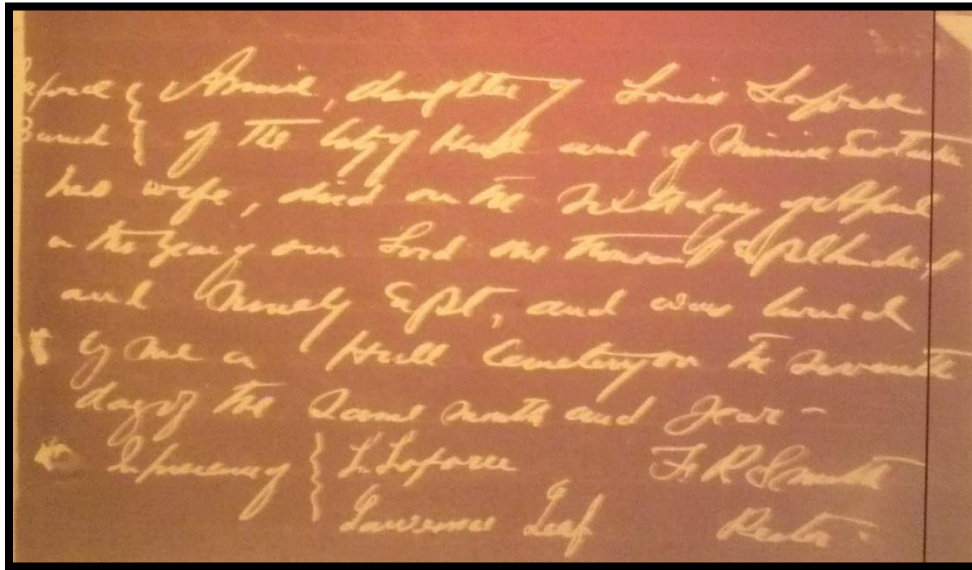 Laforce { Annie, daughter of Louis Laforce
Buried of the City of Hull and of Minnie
his wife, died on the Sixth day of April
in the Year of our Lord one thousand Eight hundred
and Ninety Eight, and was buried
by me in Hull Cemetery on the seventh
day of the same month and year -
In presence of { L. Laforce F. R. Smith
Lawrence Leaf Rector -